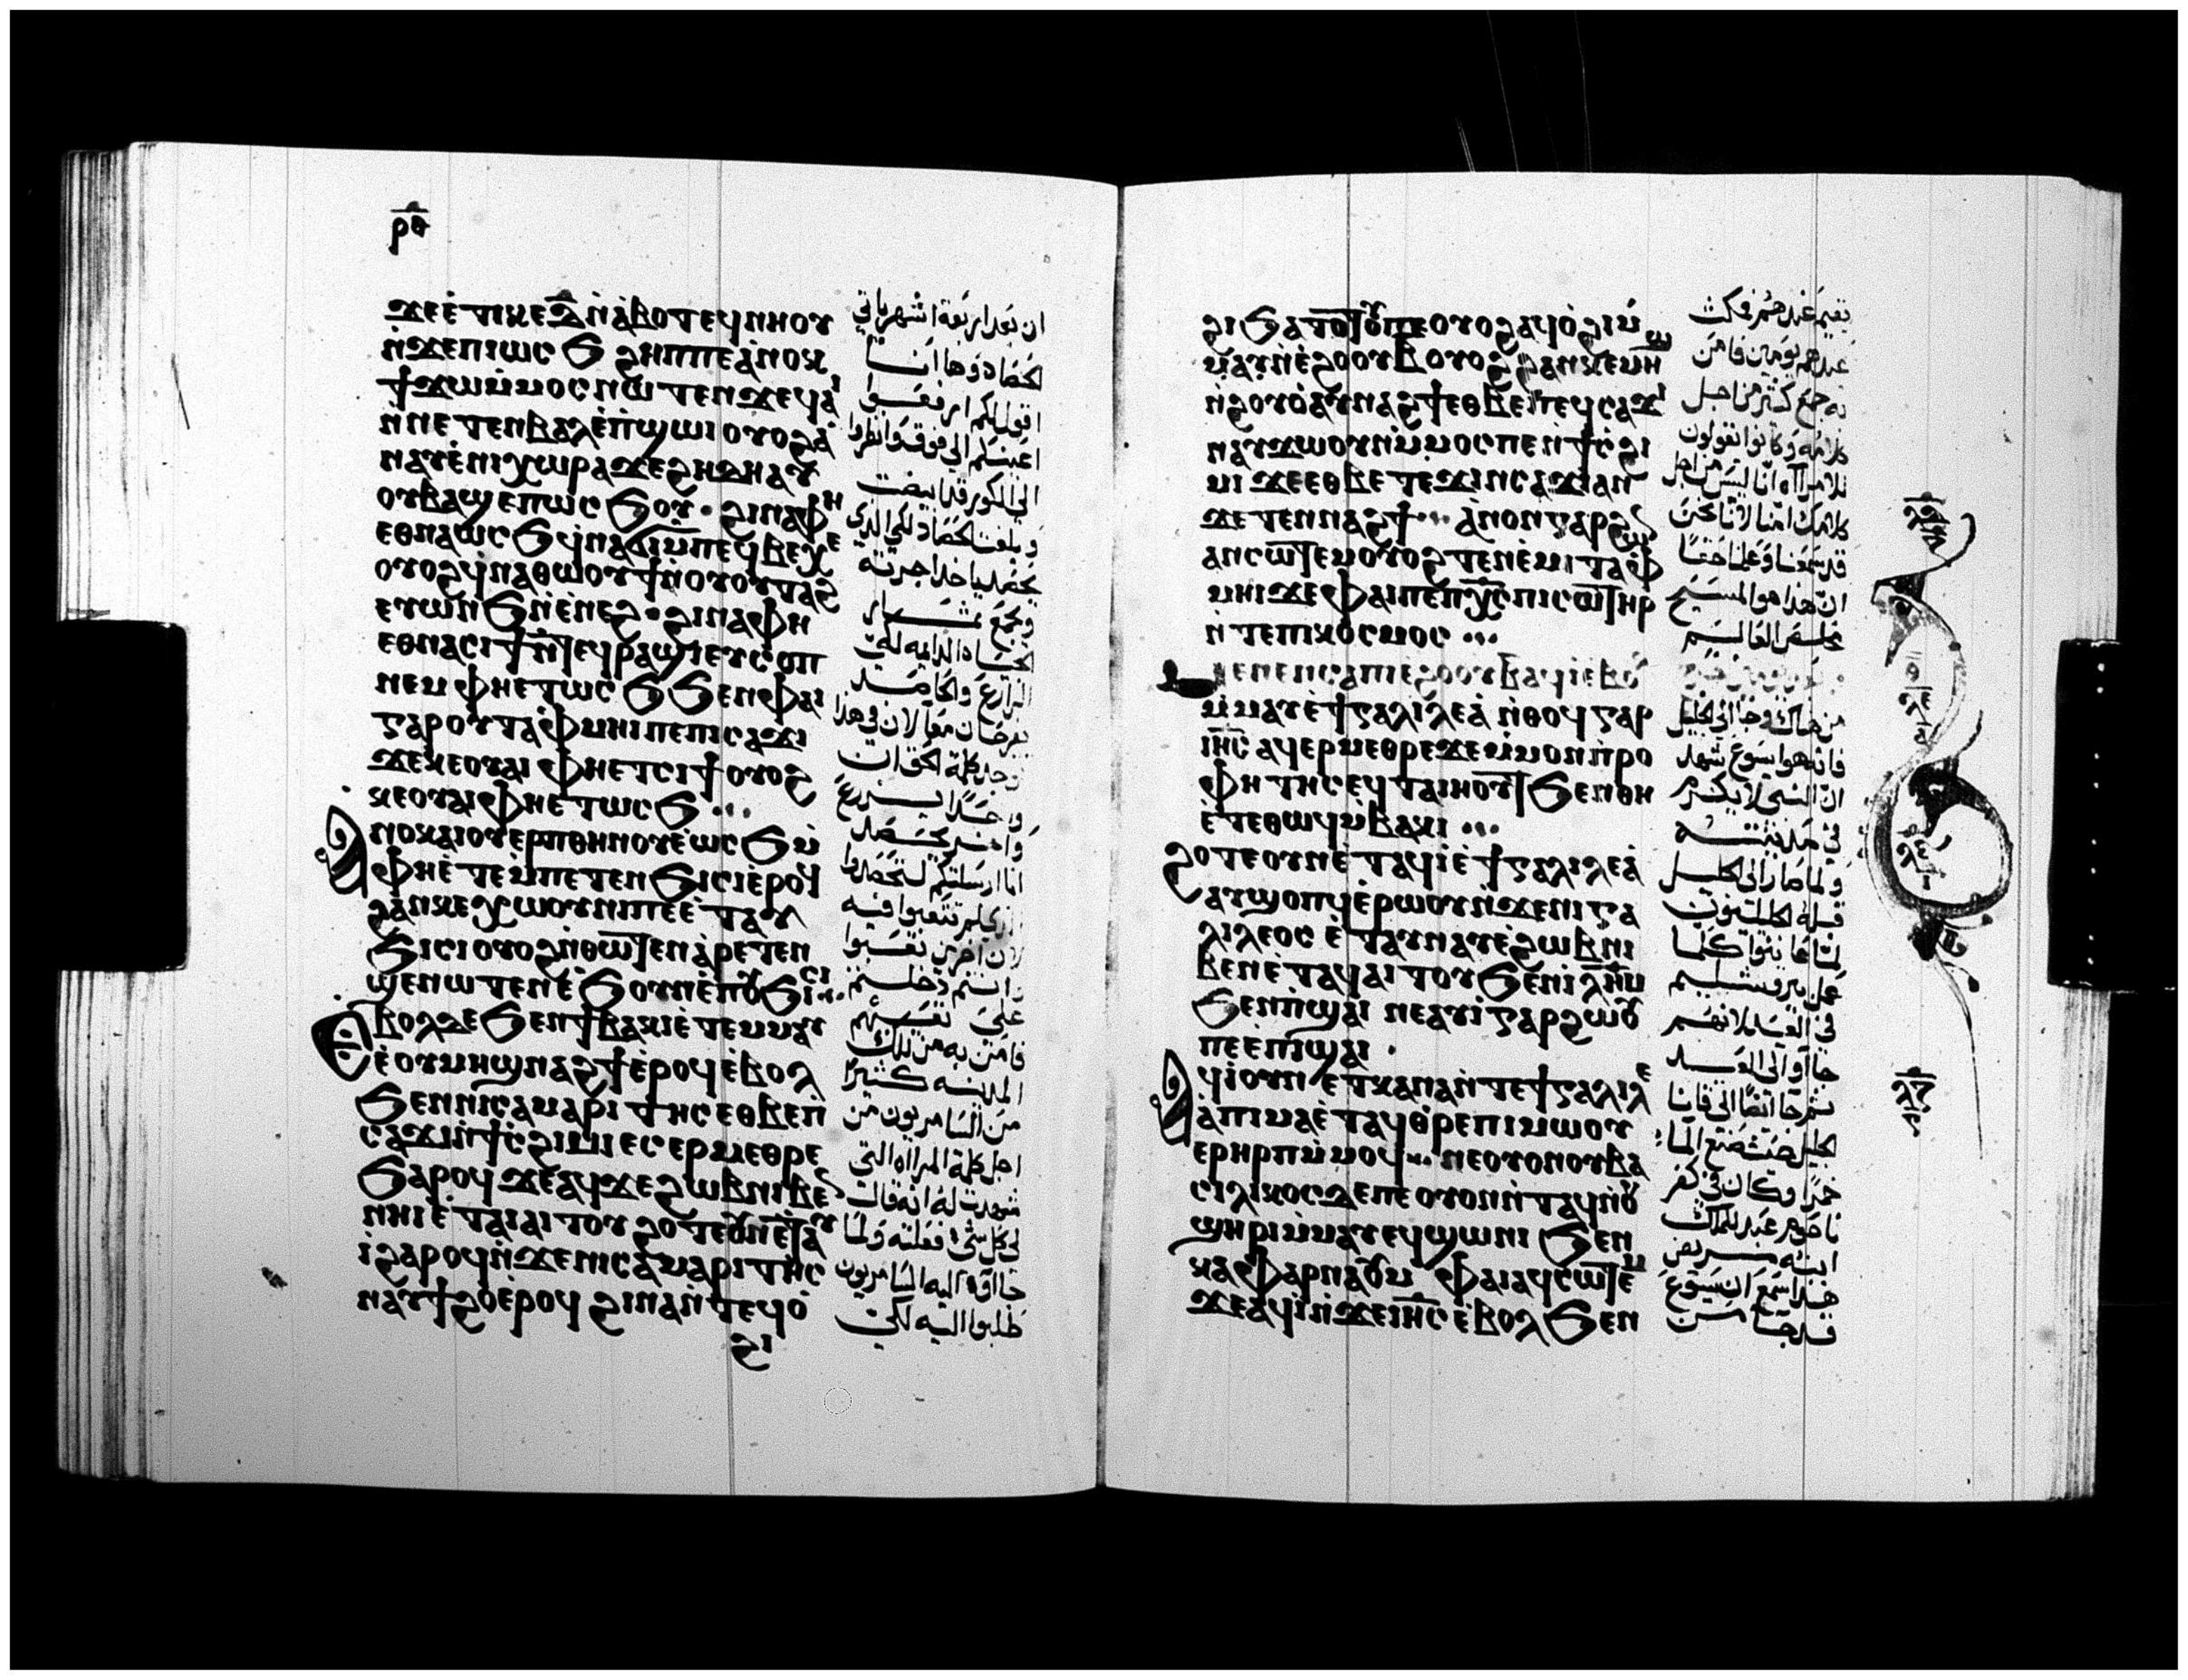 ⲣ̅ⲑ̅
ϫⲉ ⲉ̀ⲧⲓ ⲕⲉ ⲇ̅ ⲛ̀ⲁ̀ⲃⲟⲧ ϥⲛⲏⲟⲩ
ⲛ̀ϫⲉ ⲡⲓⲱⲥϧ ϩⲏⲡⲡⲉ ⲁ̀ⲛⲟⲕ
ϯϫⲱ ⲙ̀ⲙⲟⲥ ⲛⲱⲧⲉⲛ ϫⲉ ϥⲁⲓ
ⲛ̀ⲛⲉⲧⲉⲛⲃⲁⲗ ⲉ̀ⲡ̀ϣⲱⲓ ⲟⲩⲟϩ ⲁ̀
ⲛⲁⲩ ⲉ̀ⲛⲓⲭⲱⲣⲁ ϫⲉ ϩⲏⲇⲏ ⲁⲩ
ⲟⲩⲃⲁϣ ⲉⲡⲱⲥϧⲟⲩ · ϩⲓⲛⲁ ⲫⲏ
ⲉⲑⲛⲁⲱⲥϧ ϥ̀ⲛⲁϭⲓ ⲙ̀ⲡⲉϥⲃⲉⲭⲉ
ⲟⲩⲟϩ ϥ̀ⲛⲁⲑⲱⲟⲩϯ ⲛ̀ⲟⲩⲟⲩⲧⲁϩ
ⲉⲩⲱⲛϧ ⲛ̀ⲉ̀ⲛⲉϩ · ϩⲓⲛⲁ ⲫⲏ
ⲉⲑⲛⲁⲥⲓϯ ⲛ̀ⲧⲉϥⲣⲁϣⲓ ⲉⲩⲥⲟⲡ
ⲛⲉⲙ ⲫⲏ ⲉⲧⲱⲥϧ ϧⲉⲛ ⲫⲁⲓ
ⲅⲁⲣ ⲟⲩⲧⲁⲫⲙⲏⲓ ⲡⲉ ⲡⲓⲥⲁϫⲓ
ϫⲉ ⲕⲉⲟⲩⲁⲓ ⲫⲏ ⲉⲧⲥⲓϯ ⲟⲩⲟϩ
ⲕⲉⲟⲩⲁⲓ ⲫⲏ ⲉⲧⲱⲥϧ ...
ⲁⲛⲟⲕ ⲁⲓⲟⲩⲉⲣⲡ ⲑⲏⲛⲟⲩ ⲉ̀ⲱⲥϧ ⲙ̀
ⲫⲏ ⲉ̀ⲧⲉⲙ̀ⲡⲉⲧⲉⲛϧⲓⲥⲓ ⲉ̀ⲣⲟϥ
ϩⲁⲛⲕⲉⲭⲱⲟⲩⲛⲓ ⲡⲉ ⲉ̀ⲧⲁⲩ
ϧⲓⲥⲓ ⲟⲩⲟϩ ⲛ̀ⲑⲱⲧⲉⲛ ⲁ̀ⲣⲉⲧⲉⲛ
ϣⲉⲛⲱⲧⲉⲛ ⲉ̀ϧⲟⲩⲛ ⲉ̀ⲡⲟⲩϧⲓⲥⲓ
Ⲉⲃⲟⲗ ⲇⲉ ϧⲉⲛ ϯⲃⲁⲕⲓ ⲉ̀ⲧⲉⲙⲙⲁⲩ
ⲉ̀ ⲟⲩⲙⲏϣ ⲛⲁϩϯ ⲉ̀ⲣⲟϥ ⲉ̀ⲃⲟⲗ
ϧⲉⲛ ⲛⲓⲥⲁⲙⲁⲣⲓⲧⲏⲥ ⲉⲑⲃⲉ ⲡ
ⲥⲁϫⲓ ⲛ̀ϯⲥ̀ϩⲓⲙⲓ ⲉⲥⲉⲣⲙⲉⲑⲣⲉ
ϧⲁⲣⲟϥ ϫⲉ ⲁϥϫⲉ ϩⲱⲃ ⲛⲓⲃⲉⲛ
ⲛⲏⲓ ⲉ̀ⲧⲁⲓⲁⲓⲧⲟⲩ ϩⲟⲧⲉ ⲟⲩⲛ ⲉ̀ⲧⲁⲩ
ⲓ̀ ϩⲁⲣⲟϥ ⲛ̀ϫⲉ ⲛⲓⲥⲁⲙⲁⲣⲓⲧⲏⲥ
ⲛⲁⲩϯϩⲟ ⲉ̀ⲣⲟϥ ϩⲓⲛⲁ ⲛ̀ⲧⲉϥⲟ̀
ϩⲓ
ان بعد اربعة اشهر ياتي
الحصاد وها انا
اقول لكم ارفعوا
اعينكم الى فوق وانظروا
الى الكور قد ابيضت
وبلغت الحصاد لكي الذي
يحصد ياخذ اجرته
ويجمع ثمار
الحياه الدايمه لكي
الزارع والحاصد
يفرحان معا لان في هذا
توجد كلمة الحق ان
واحدًا يزرع
واخر يحصد
انا ارسلتكم لتحصدوا
لان اخرين تعبوا
وانتم دخلتم
على تعبهم
فامن به من تلك
المدينه كثيرًا
من السامريون من
اجل كلمة المراه التي
شهدت له انه قال
لي كل شي فعلته ولما
جااوا اليه السامريون
طلبوا اليه لكي
ϩⲓ ϧⲁⲧⲟⲧⲟⲩ ⲡⲉ ⲟⲩⲟϩ ⲁϥⲟ̀ϩⲓ ⲙ̀
ⲙⲁⲩ ⲛ̀ⲉ̀ϩⲟⲟⲩ ⲃ̅ ⲟⲩⲟϩ ϩⲁⲛⲕⲉⲙⲏϣ
ⲛ̀ϩⲟⲩⲟ̀ ⲁⲩⲛⲁϩϯ ⲉⲑⲃⲉ ⲡⲉϥⲥⲁϫⲓ
ⲛⲁⲩϫⲱ ⲟⲩⲛ ⲙ̀ⲙⲟⲥ ⲡⲉ ⲛ̀ϯⲥ̀ϩⲓ
ⲙⲓ ϫⲉ ⲉⲑⲃⲉ ⲧⲉϫⲓⲛⲥⲁϫⲓ ⲁⲛ
ϫⲉ ⲧⲉⲛⲛⲁϩϯ ... ⲁ̀ⲛⲟⲛ ⲅⲁⲣ
ⲁⲛⲥⲱⲧⲉⲙ ⲟⲩⲟϩ ⲧⲉⲛⲉ̀ⲙⲓ ⲧⲁⲫ
ⲙⲏⲓ ϫⲉ ⲫⲁⲓ ⲡⲉ ⲡⲭ̅ⲥ̅ ⲡⲓⲥⲱⲧⲏⲣ
ⲛ̀ⲧⲉ ⲡⲓⲕⲟⲥⲙⲟⲥ ...
ⲙⲉⲛⲉⲛⲥⲁ ⲡⲓⲉ̀ϩⲟⲟⲩ ⲃ̅ ⲁϥⲓ̀ ⲉ̀ⲃⲟⲗ
ⲙ̀ⲙⲁⲩ ⲉ̀ϯⲅⲁⲗⲓⲗⲉⲁ̀ ⲛ̀ⲑⲟϥ ⲅⲁⲣ
ⲓⲏ̅ⲥ̅ ⲁϥⲉⲣⲙⲉⲑⲣⲉ ϫⲉ ⲙ̀ⲙⲟⲛ ⲡ̀ⲣⲟ
ⲫⲏⲧⲏⲥ ⲉϥⲧⲁⲓⲏⲟⲩⲧ ϧⲉⲛ ⲑⲏ
ⲉ̀ⲧⲉⲑⲱϥ ⲙ̀ⲃⲁⲕⲓ ...
ϩⲟⲧⲉ ⲟⲩⲛ ⲉ̀ⲧⲁϥⲓ̀ ⲉ̀ϯⲅⲁⲗⲓⲗⲉⲁ̀
ⲁⲩϣⲟⲡϥ ⲉ̀ⲣⲱⲟⲩ ⲛ̀ϫⲉ ⲛⲓⲅⲁ
ⲗⲓⲗⲉⲟⲥ ⲉ̀ⲧⲁⲩⲛⲁⲩ ⲉ̀ϩⲱⲃ ⲛⲓ
ⲃⲉⲛ ⲉ̀ⲧⲁϥⲁⲓⲧⲟⲩ ϧⲉⲛ ⲓ̅ⲗ̅ⲏ̅ⲙ̅
ϧⲉⲛ ⲡ̀ϣⲁⲓ ⲛⲉ ⲁⲩⲓ̀ ⲅⲁⲣ ϩⲱⲟⲩ
ⲡⲉ ⲉ̀ⲡ̀ϣⲁⲓ ·
Ⲁϥⲓ̀ ⲟⲩⲛ ⲉ̀ⲧⲕⲁⲛⲁ ⲛ̀ⲧⲉ ϯⲅⲁⲗⲓⲗⲉ
ⲁ̀ ⲡⲓⲙⲁ ⲉ̀ⲧⲁϥⲑⲣⲉ ⲡⲓⲙⲱⲟⲩ
ⲉⲣⲏⲣⲡ ⲙ̀ⲙⲟϥ ... ⲛⲉ ⲟⲩⲟⲛ ⲟⲩⲃⲁ
ⲥⲓⲗⲓⲕⲟⲥ ⲇⲉ ⲡⲉ ⲟⲩⲟⲛⲛ̀ⲧⲁϥ ⲛ̀ⲟⲩ
ϣⲏⲣⲓ ⲙ̀ⲙⲁⲩ ⲉϥϣⲱⲛⲓ ϧⲉⲛ
ⲕⲁⲫⲁⲣⲛⲁⲟⲩⲙ ⲫⲁⲓ ⲁϥⲥⲱⲧⲉⲙ
ϫⲉ ⲁϥⲓ̀ ⲛ̀ϫⲉ ⲓⲏ̅ⲥ̅ ⲉ̀ⲃⲟⲗ ϧⲉⲛ
يقيم عندهم فمكث
عندهم يومين فامن
به جمع كثير من اجل
كلامه وكانوا يقولون
للامراه انا ليس من اجل
كلامك امنا لاننا نحن
قد سمعنا وعلمنا حقًا
ان هذا هو المسيح
مخلص العالم
من هناك وجا الى الجليل
فانه هو يسوع شهد
ان النبي لا يكرم
في مدينته
ولما صار الى الجليل
قبله الجليليون
لما عاينوا كلما
عمل بيروشليم
في العيد لانهم
جااوا الى العيد
ثم جا ايضًا الى قانا
الجليل حيث صنع الما
خمرًا وكان في كفر
ناحوم عبد للملك
ابنه مريض
هذا سمع ان يسوع
قد جا من